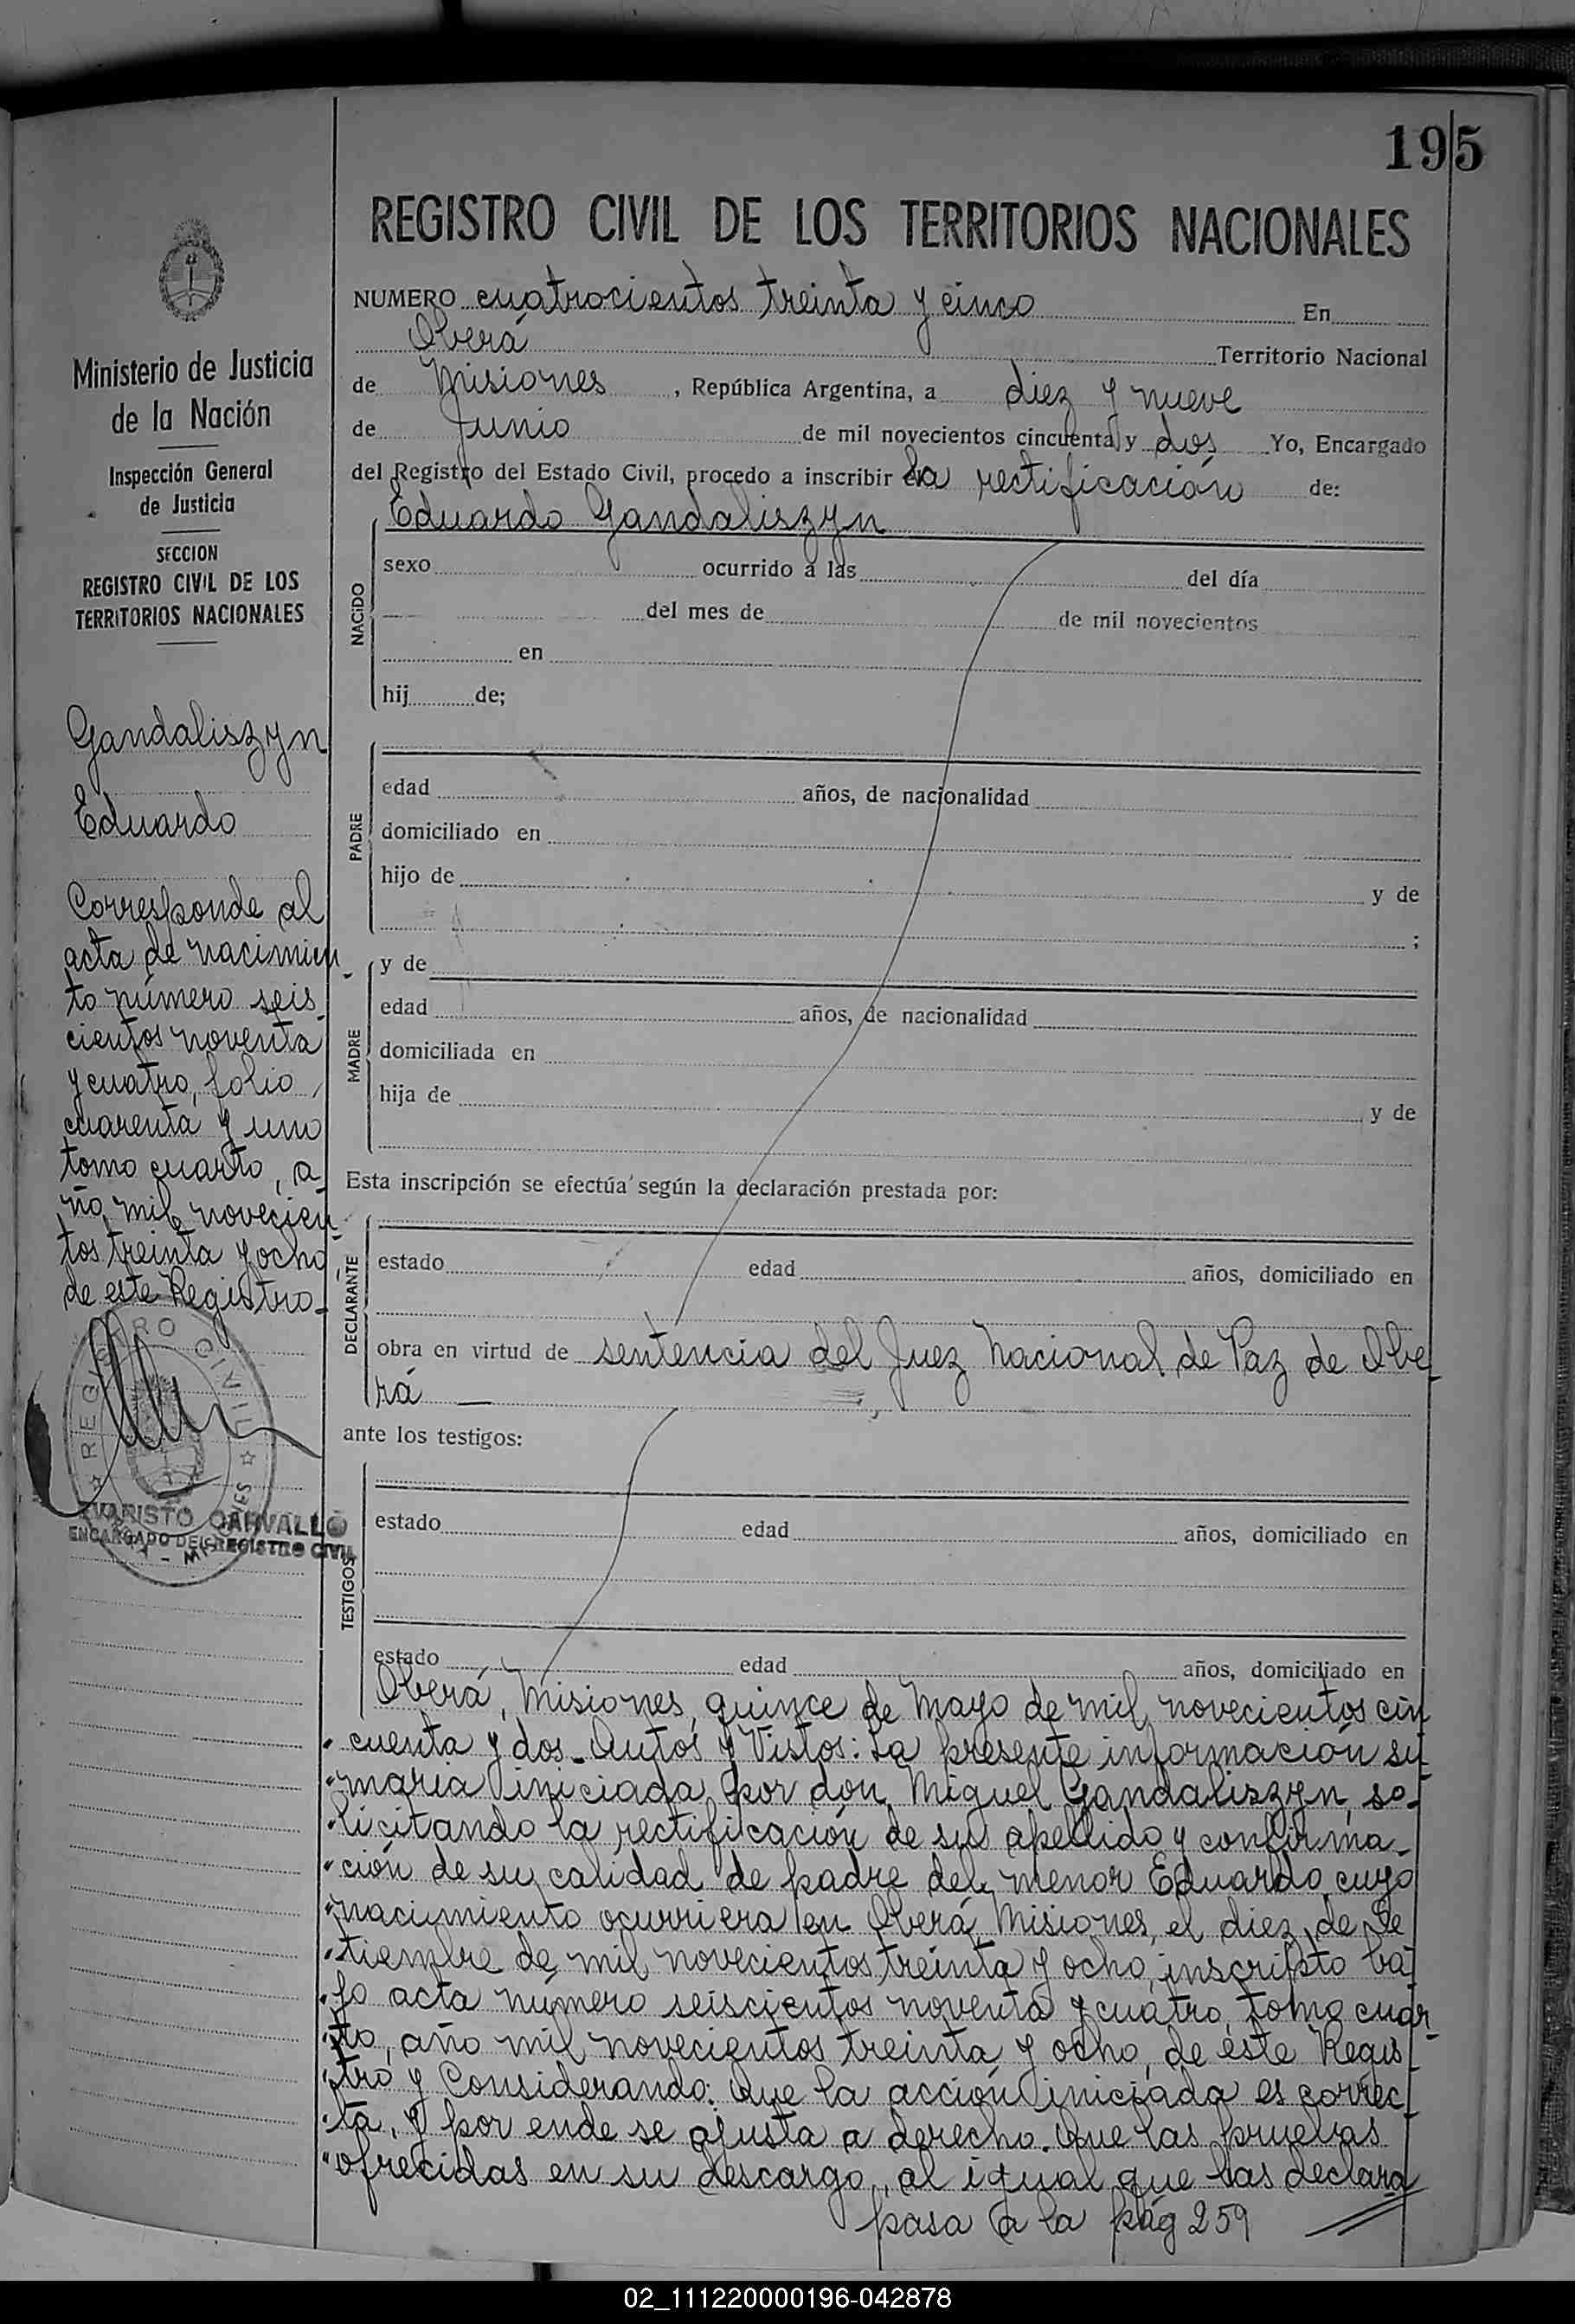 195
REGISTRO CIVIL DE LOS TERRITORIOS NACIONALES
NUMERO cuatrocientos treinta y cinco En
Oberá Territorio Nacional
de Misiones, República Argentina, a diez y nueve
de Junio de mil novecientos cincuenta y dos Yo, Encargado
del Registro del Estado Civil, procedo a inscribir la rectificación de:
Eduardo Gandaliszyn
NACIDO
sexo ocurrido a las del día
del mes de de mil novecientos
en
hij de;
PADRE
edad años, de nacionalidad
domiciliado en
hijo de y de
;
MADRE
y de
edad años, de nacionalidad
domiciliada en
hija de y de
Esta inscripción se efectúa según la declaración prestada por:
DECLARANTE
estado edad años, domiciliado en
obra en virtud de sentencia del Juez Nacional de Paz de Obe-
rá —
ante los testigos:
TESTIGOS
estado edad años, domiciliado en
estado edad años, domiciliado en
Oberá, Misiones, quince de Mayo de mil novecientos cin
" cuenta y dos.- Autos y Vistos: La presente información su-
" maria iniciada por don Miguel Gandaliszyn, so-
" licitando la rectificación de su apellido y confirma-
" ción de su calidad de padre del menor Eduardo, cuyo
" nacimiento ocurriera en Oberá, Misiones, el diez de Se
" tiembre de mil novecientos treinta y ocho, inscripto ba-
" jo acta número seiscientos noventa y cuatro, tomo cuar-
" to, año mil novecientos treinta y ocho, de éste Regis-
" tro y Considerando: Que la acción iniciada es correc-
" ta, y por ende se ajusta a derecho. Que las pruebas
" ofrecidas en su descargo, al igual que las declara
pasa a la pág 259
Ministerio de Justicia
de la Nación
Inspección General
de Justicia
SECCION
REGISTRO CIVIL DE LOS
TERRITORIOS NACIONALES
Gandaliszyn
Eduardo
Corresponde al
acta de nacimien-
to número seis-
cientos noventa
y cuatro, folio
cuarenta y uno
tomo cuarto, a-
ño mil novecien-
tos treinta y ocho
de este Registro.-
REGISTRO CIVIL
EVARISTO CARVALLO
ENCARGADO DEL REGISTRO CIVIL
02_111220000196-042878